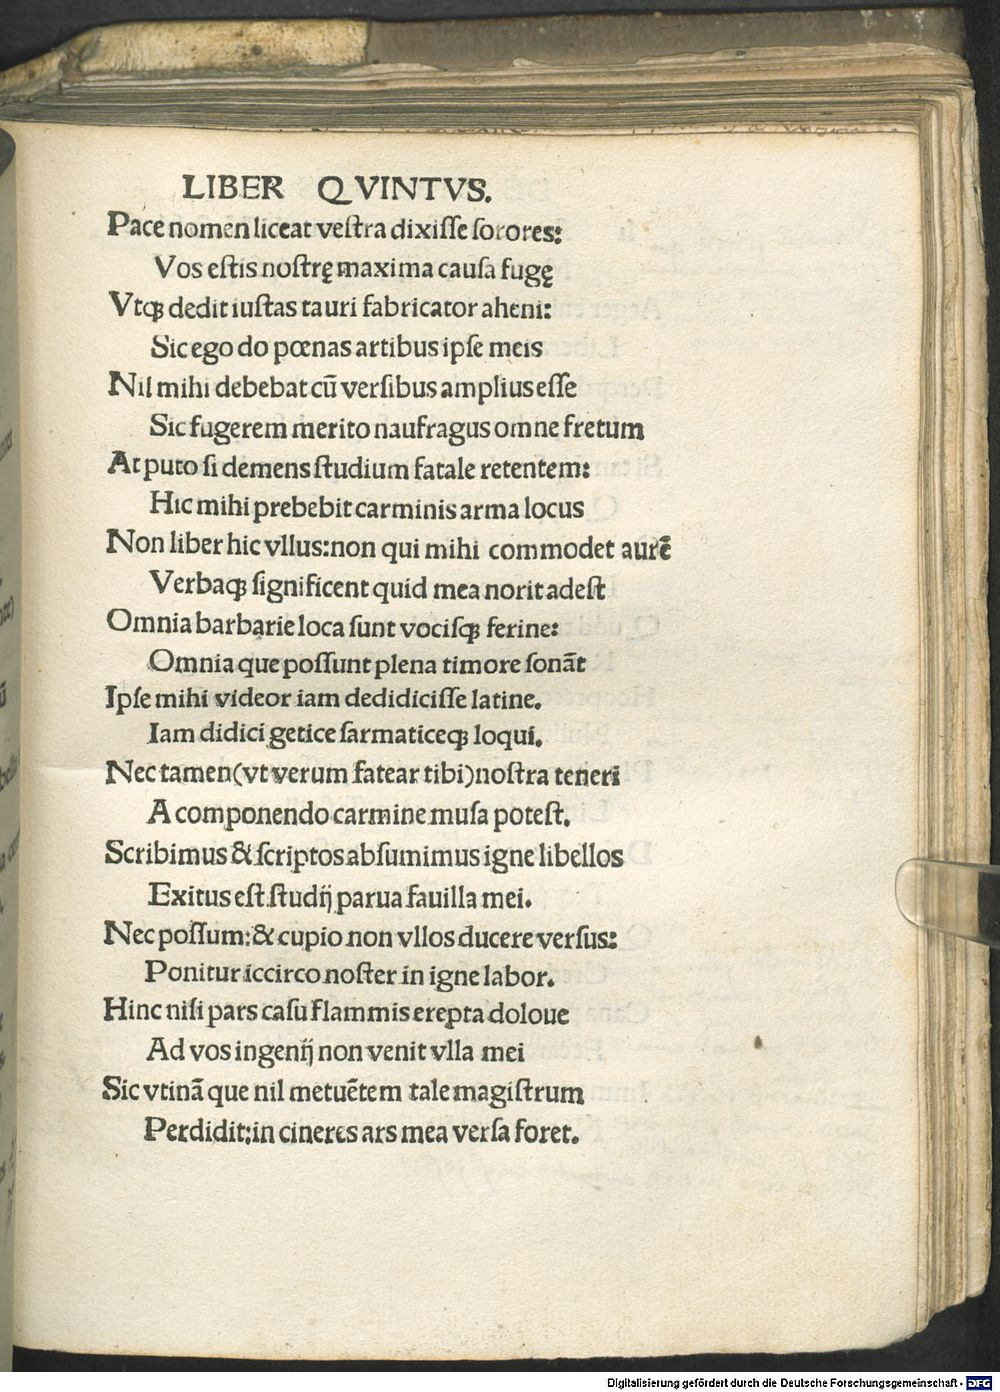 LIBER QVINTVS.
Pace nomen liceat veſtra dixiſſe ſorores:
Vos eſtis noſtrę maxima cauſa fugę
Vtqꝫ dedit iuſtas tauri fabricator aheni:
Sic ego do pœnas artibus ipſe meis
Nil mihi debebat cū verſibus amplius eſſe
Sic fugerem merito naufragus omne fretum
At puto ſi demens ſtudium fatale retentem:
Hic mihi prebebit carminis arma locus
Non liber hic vllus: non qui mihi commodet aurē
Verbaqꝫ ſignificent quid mea norit adeſt
Omnia barbarie loca ſunt vociſqꝫ ferine:
Omnia que poſſunt plena timore ſonāt
Ipſe mihi videor iam dedidiciſſe latine.
Iam didici getice ſarmaticeqꝫ loqui.
Nec tamen (vt verum fatear tibi) noſtra teneri
A componendo carmine muſa poteſt.
Scribimus & ſcriptos abſumimus igne libellos
Exitus eſt ſtudĳ parua fauilla mei.
Nec poſſum: & cupio non vllos ducere verſus:
Ponitur iccirco noſter in igne labor.
Hinc niſi pars caſu flammis erepta doloue
Ad vos ingenĳ non venit vlla mei
Sic vtinā que nil metuētem tale magiſtrum
Perdidit: in cineres ars mea verſa foret.
Digitalisierung gefördert durch die Deutsche Forschungsgemeinschaft - DFG